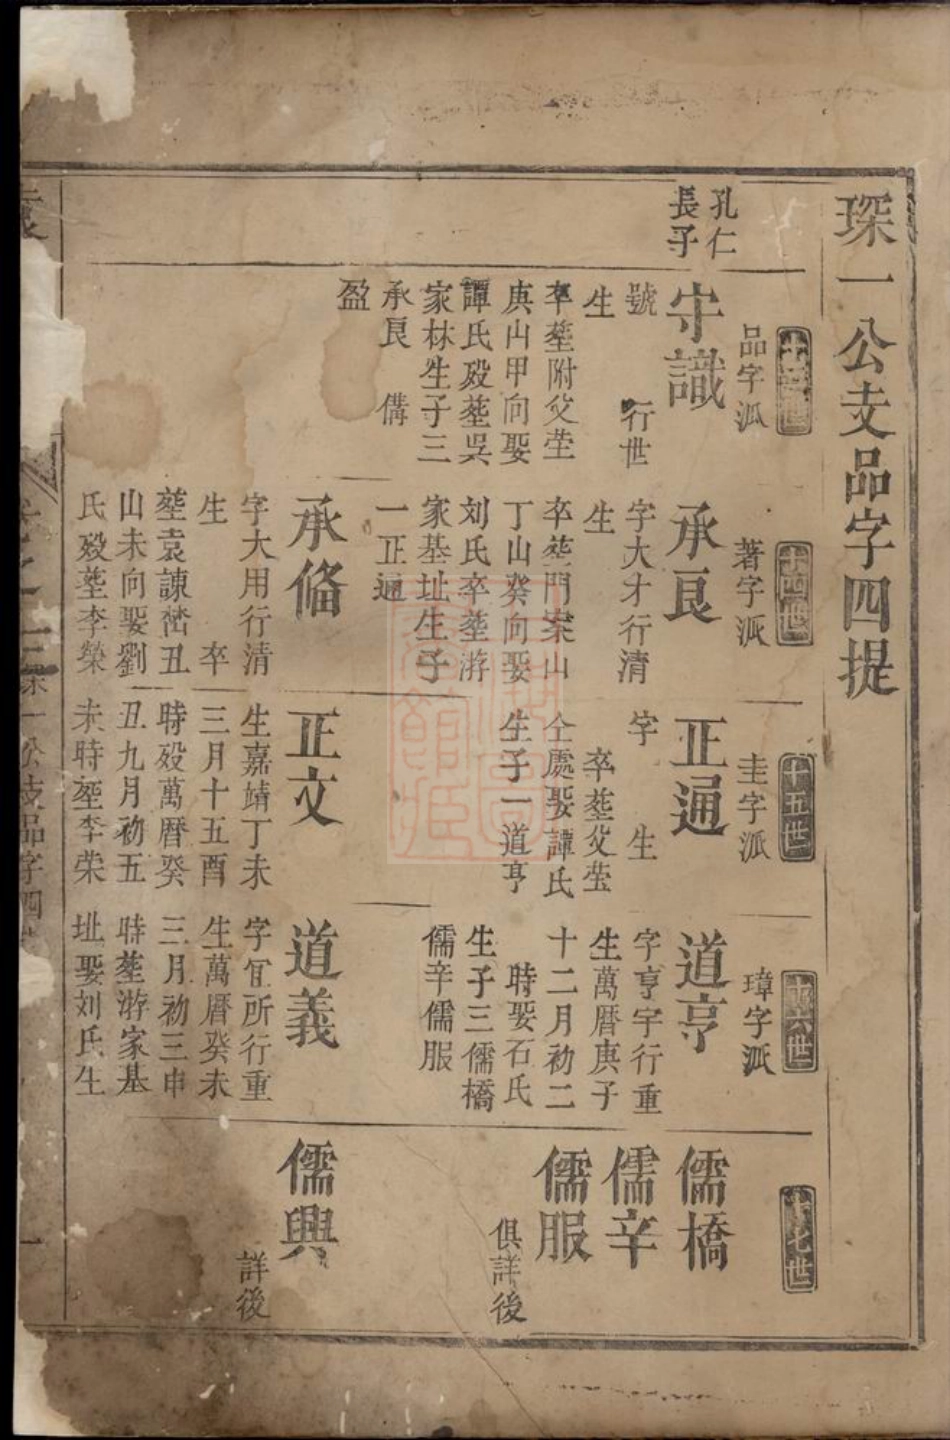 琛一公支品字四提
十三世
品字派
孔仁
長子
守識
號　行世
生
卒塟附父茔
庚山甲向娶
譚氏殁塟吳
家林生子三
承良　備
盈
十四世
著字派
承良
字大才行清
生
卒塟門案山
丁山癸向娶
刘氏卒塟游
家基址生子
一正通
承俻
字大用行清
生　卒
塟袁諌嵆丑
山未向娶劉
氏殁塟李榮
十五世
圭字派
正通
字　生
卒塟父茔
仝處娶譚氏
生子一道亨
正文
生嘉靖丁未
三月十五酉
時殁萬曆癸
丑九月初五
未時塟李荣
十六世
璋字派
道亨
字亨宇行重
生萬曆庚子
十二月初二
時娶石氏
生子三儒橋
儒辛儒服
道義
字宜所行重
生萬曆癸未
三月初三申
時塟游家基
址娶刘氏生
十七世
儒橋
儒辛
儒服
俱詳後
儒興
詳後
一公支品字四
一